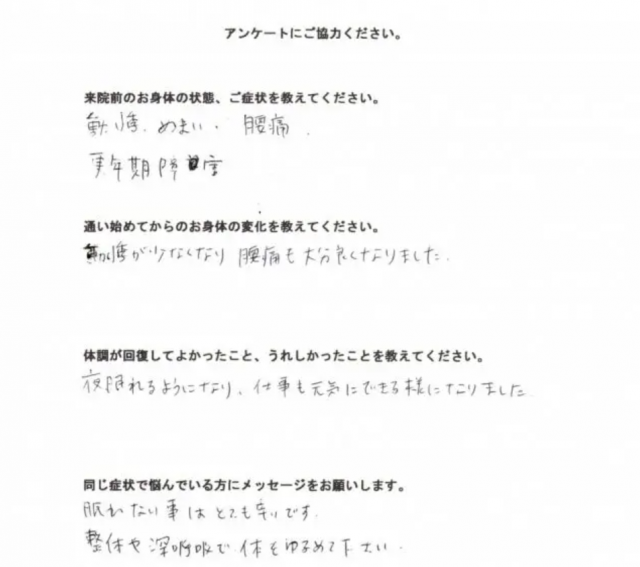 アンケートにご協力ください。
来院前のお身体の状態、ご症状を教えてください。
動悸、めまい・腰痛、
更年期障害
通い始めてからのお身体の変化を教えてください。
動悸が少なくなり腰痛も大分良くなりました。
体調が回復してよかったこと、うれしかったことを教えてください。
夜眠れるようになり、仕事も元気にできる様になりました
同じ症状で悩んでいる方にメッセージをお願いします。
眠れない事はとても辛いです。
整体や深呼吸で体をゆるめて下さい。